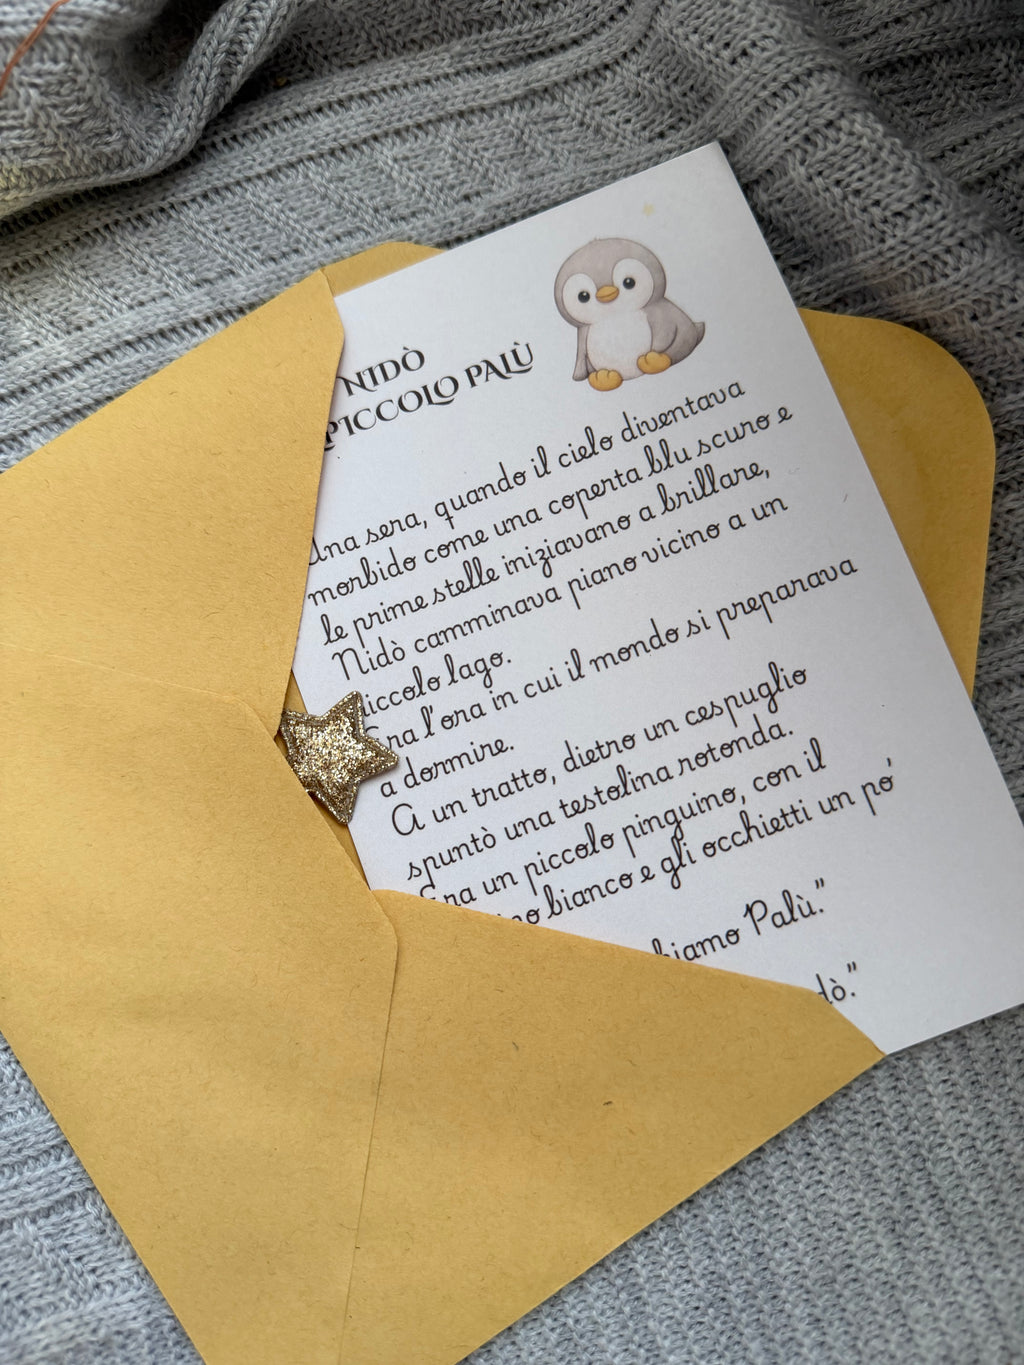 NIDÒ
PICCOLO PALÙ
Una sera, quando il cielo diventava
morbido come una coperta blu scuro e
le prime stelle iniziavano a brillare,
Nidò camminava piano vicino a un
iccolo lago.
Era l'ora in cui il mondo si preparava
a dormire.
A un tratto, dietro un cespuglio
spuntò una testolina rotonda.
Era un piccolo pinguino, con il
no bianco e gli occhietti un po'
hiamo Palù.”
dò.”